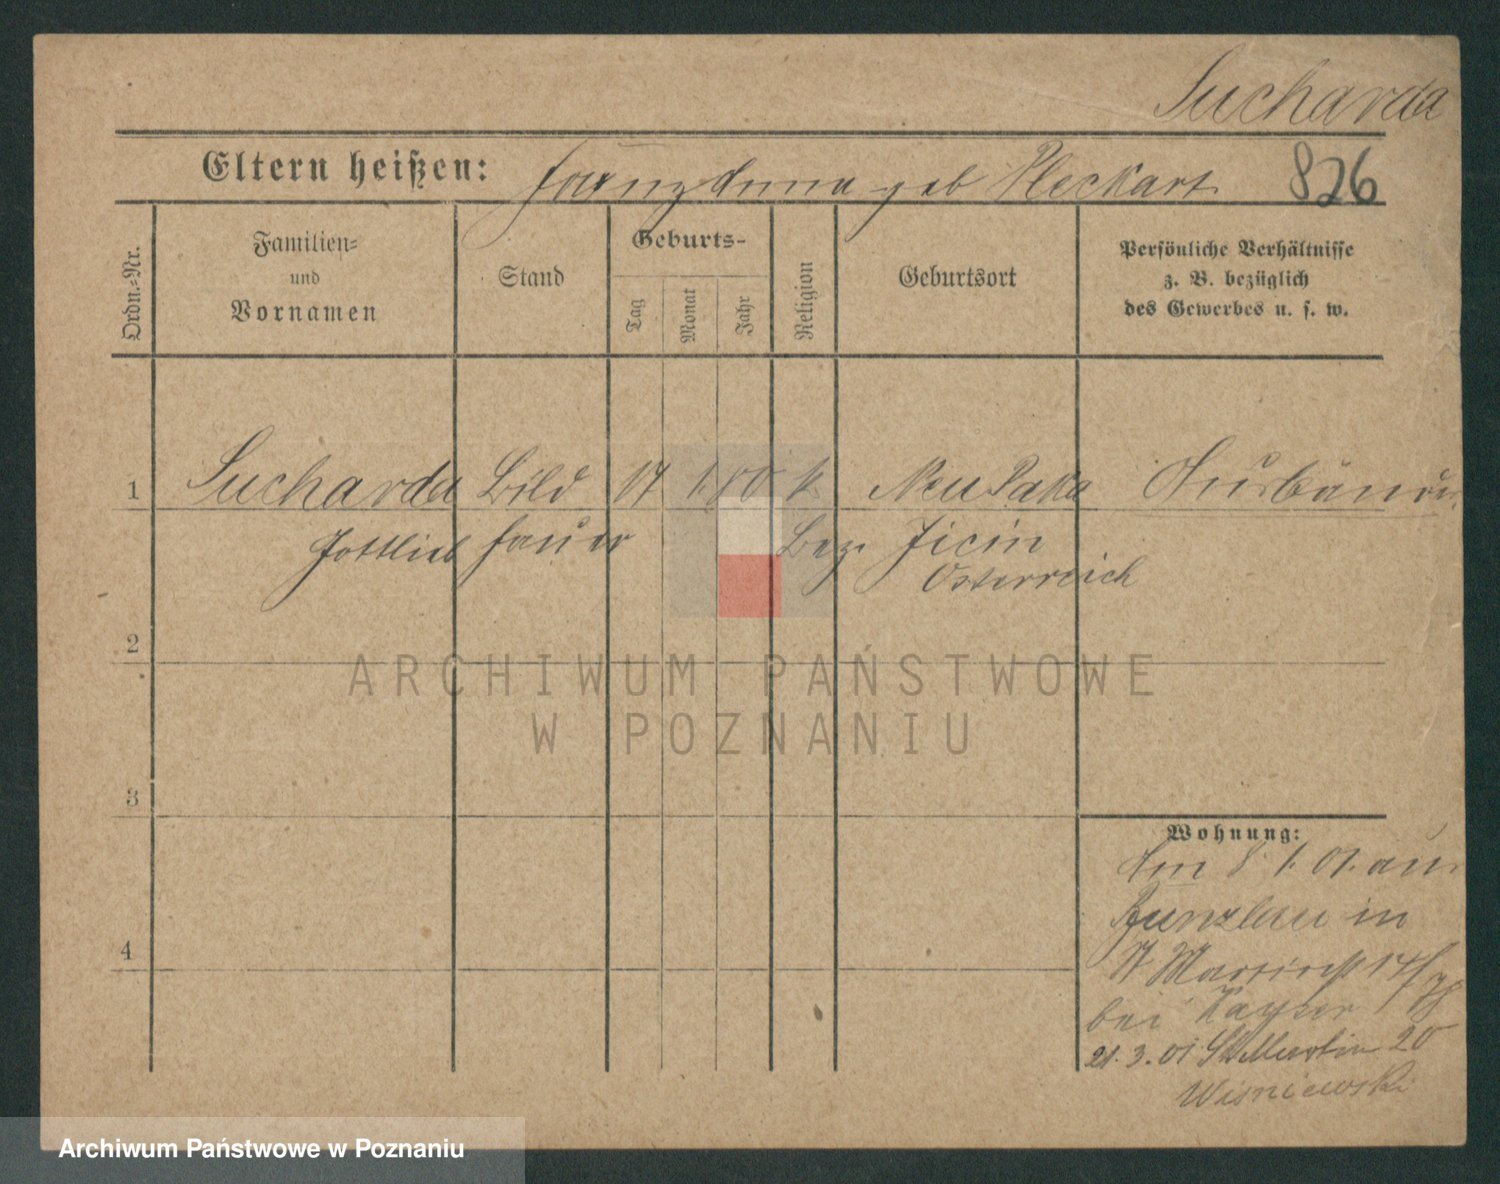 Sucharda
Eltern heißen: Franz Anna geb Pleckart 826
Ordn.-Nr.
Familien-
und
Vornamen
Stand
Geburts-
Tag
Monat
Jahr
Religion
Geburtsort
Persönliche Verhältnisse
z. B. bezüglich
des Gewerbes u. s. w.
1 Sucharda Bild 17 1. 80 k. Neu Paka
Gottlieb hauer Bez. Jicin
Österreich
2
ARCHIWUM PAŃSTWOWE
W POZNANIU
3
Wohnung:
Am 8 1. 01. aus
Bunzlau in
4
St Martinst 14/
bei Kayser
21. 3. 01 St Martin 20
Wisniewski
Archiwum Państwowe w Poznaniu